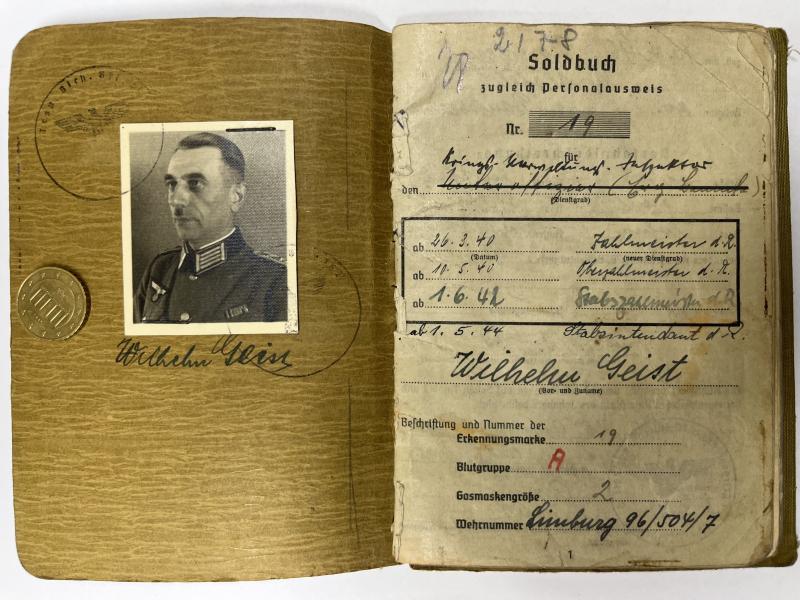 Wilhelm Geist
2178
Soldbuch
zugleich Personalausweis
Nr. 19
für
Kriegs-Verwaltungs-Inspektor
den Unteroffizier
(Dienstgrad)
ab 26.3.40 Zahlmeister d.R.
(Datum) (neuer Dienstgrad)
ab 10.5.40 Oberzahlmeister d.R.
ab 1.6.42 Stabszahlmeister d.R
ab 1.5.44 Stabsintendant d.R.
Wilhelm Geist
(Vor- und Zuname)
Beschriftung und Nummer der
Erkennungsmarke 19
Blutgruppe A
Gasmaskengröße 2
Wehrnummer Limburg 96/504/7
1